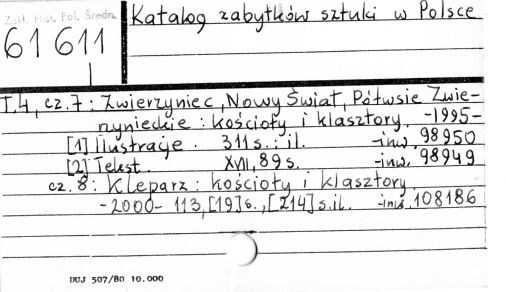 Zakł. Hist. Pol. Średn.
61 611
Katalog zabytków sztuki w Polsce
T.4, cz.7: Zwierzyniec, Nowy Świat, Półwsie Zwie-
rzynieckie: kościoły i klasztory. -1995-
[1] Ilustracje. 311 s.: il. -inw. 98950
[2] Tekst. XVII, 89 s. -inw. 98949
cz. 8: Kleparz: kościoły i klasztory.
-2000- 113, [19] s., [214] s. il. -inw. 108186
DUJ 507/80 10.000